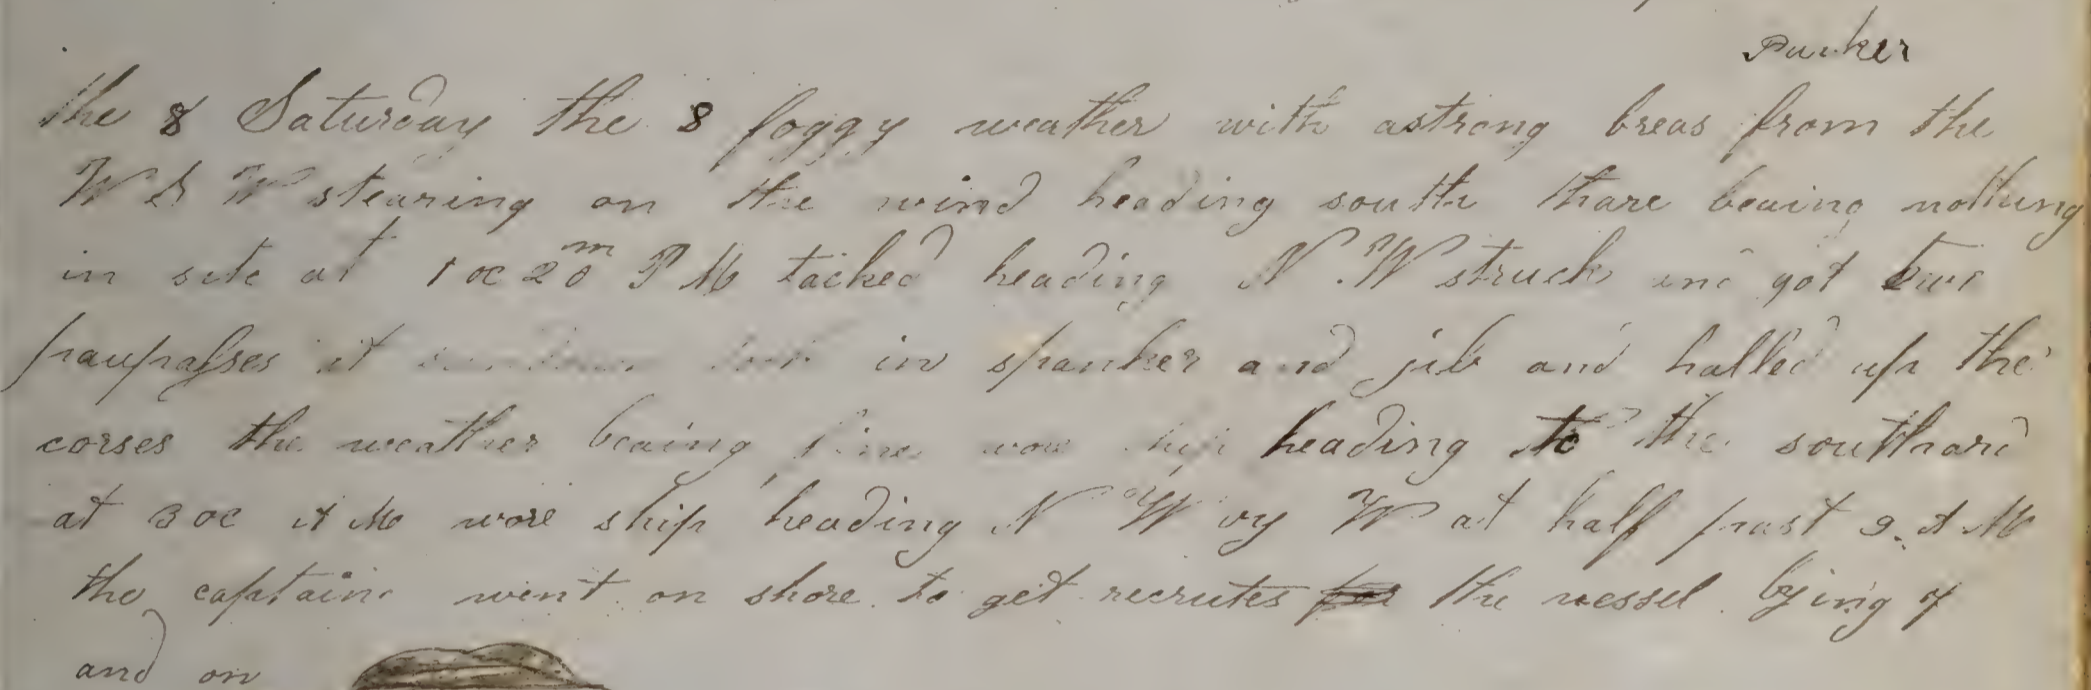 Parker
the 8 Saturday the 8 foggy weather with astrong breas from the
W S W stearing on the wind heading south thare beaing nothing
in site at 1 oc 20 m P M tacked heading N W struck and got two
paupaſses it in spanker and jib and halled up the
corses the weather beaing fine ship heading to the southard
at 3 oc A M wore ship heading N W by W at half past 9 A M
the captain went on shore to get recrutes the vessel lying of
and on